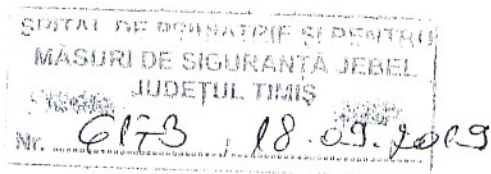 SPITAL DE PSIHIATRIE ȘI PENTRU
MĂSURI DE SIGURANȚĂ JEBEL
JUDEȚUL TIMIȘ
Nr. 6173 , 18.09.2019